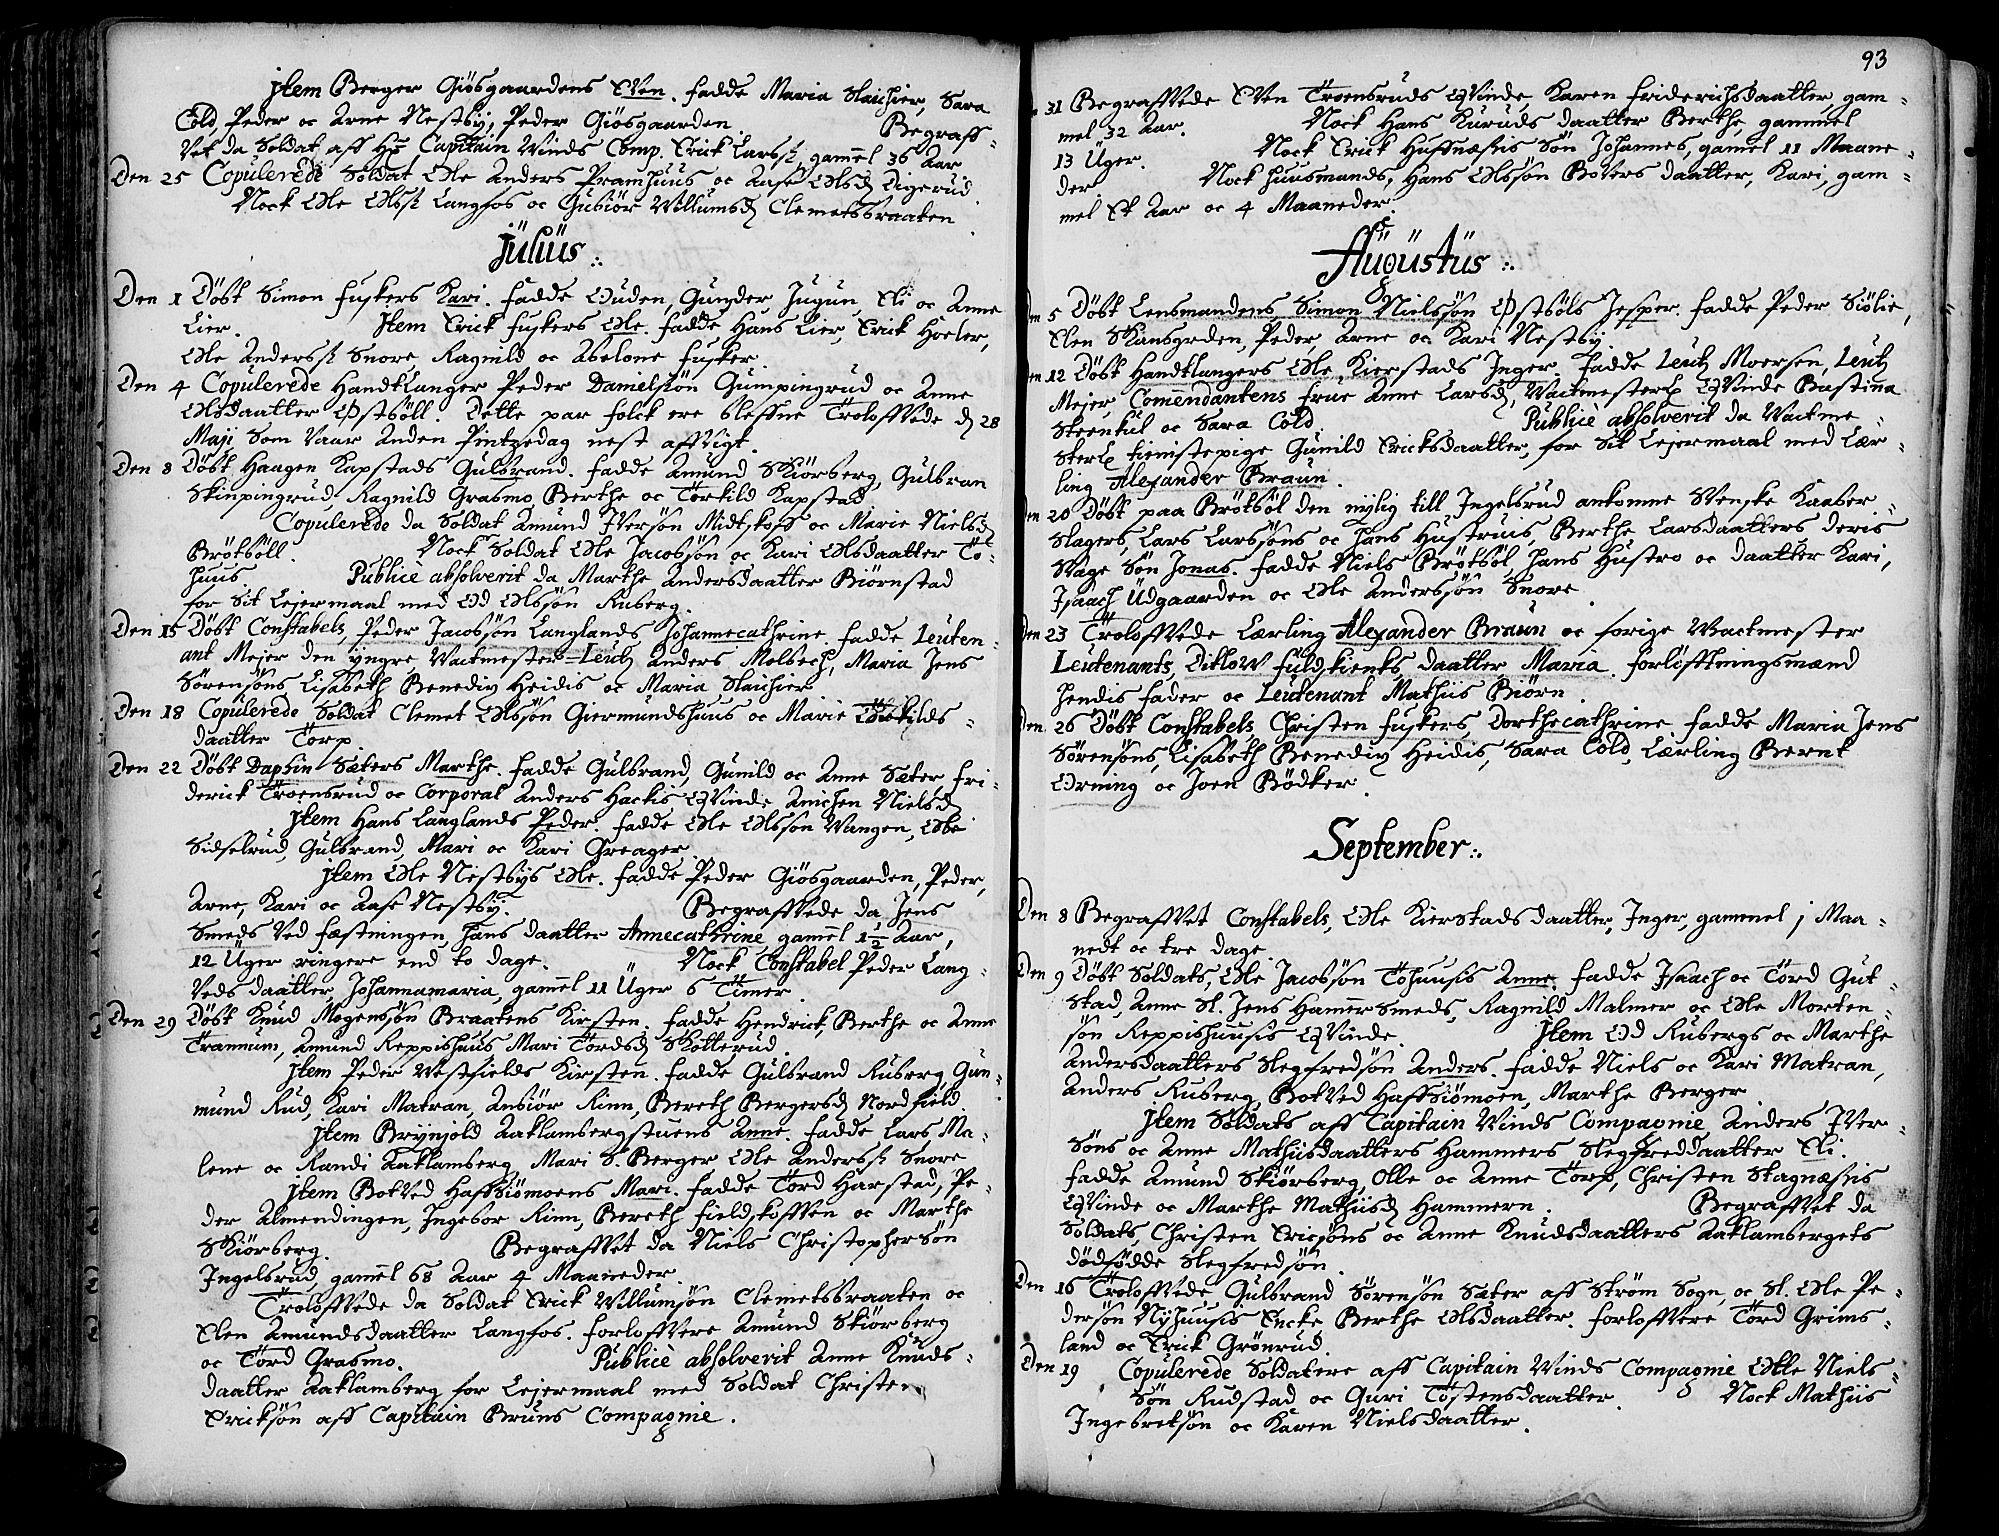 jtem Berger Giösgaardens Even. fadde Maria Slaichier, Sara
Cold, Peder oc Arne Nestby, Peder Giösgaarden. Begraff-
vet da Soldat aff Hr Capitain Winds Comp. Erick Larss, gammel 36 Aar
Den 25 Copulerede Soldat Ole Anders Pramhuus oc Aase Olsd Digerud.
Nock Ole Olss Langfos oc Gubiör Willumsd Clemetsbraaten
Jülius.
Den 1 Döbt Simon Fuskers Kari. fadde Auden, Gunder Jugun, Eli oc Anne
Lier. Jtem Erick Fuskers Ole. fadde Hans Lier, Erick Hoeler,
Ole Anderss Snore, Ragnild oc Abelone Fusker.
Den 4 Copulerede Handtlanger Peder Danielsön Gumpingrud oc Anne
Olsdaatter Östsöll. Dette par folck ere bleffne Trolofvede d 28
Maji som vaar Anden Pintzedag nest affvigt.
Den 8 Döbt Haagen Kapstads Gulbrand. fadde Amund Skiörberg, Gulbran
Skinpingrud, Ragnild Grasmo, Berthe oc Törkild Kapstad
Copulerede da Soldat Amund Iversön Midtskoff oc Marie Nielsd
Brötsöll. Nock Soldat Ole Jacobsön oc Kari Olsdaatter Tö-
huus. Publice absolverit da Marthe Andersdaatter Biörnstad
for sit Lejermaal med Od Olssön Ruberg.
Den 15 Döbt Constabels, Peder Jacobsön Langlands Johannecathrine. fadde Leuten-
ant Mejer den yngre Wactmester-Leutz Anders Molbech, Maria Jens
Sörensöns Lisabeth Benediv Heidis oc Maria Slaichier
Den 18 Copulerede Soldat Clemet Olssön Giermundshuus oc Marie Törkilds-
daatter Torp.
Den 22 Döbt Daphin Sæters Marthe. fadde Gulbrand, Gunild oc Anne Sæter fri-
derick Troensrud oc Corporal Anders Hackis Qvinde Anichen Nielsd
jtem Hans Langlands Peder. fadde Ole Olsson Wangen, Ebbe
Sidselrud, Gulbrand, Mari oc Kari Greager.
jtem Ole Nestbys Ole. fadde Peder Giösgaarden, Peder,
Arne, Kari oc Aase Nestby. Begraffvede da Jens
Smeds ved fæstningen hans daatter Annecathrine, gammel 1 1/2 Aar,
12 Üger ringere end to dage. Nock Constabel Peder Lang-
veds daatter, Johannamaria, gammel 11 Üger 6 Timer
Den 29 Döbt Knud Mogensön Braatens Kirsten. fadde Hendrick, Berthe oc Anne
Trannum, Amund Reppishuus Mari Tördsd Skotterud.
jtem Peder Westfields Kirsten. fadde Gulbrand Ruberg Gun-
mund Rud, Kari Matran, Ansiör Rinn, Bereth Bergersd Nordfield
jtem Brynjold Aaklambergstuens Anne. fadde Lars Ma-
lene oc Randi Aaklamberg, Mari S. Berger Ole Anderss Snore
jtem Botved Haffsiömoens Mari. fadde Törd Harstad, Pe-
der Almendingen, Ingebor Rinn, Bereth Fieldskoffven oc Marthe
Skiörberg. Begraffvet da Niels Christophersön
Ingelsrud, gammel 68 Aar 4 Maaneder.
Trolofvede da Soldat Erick Willumsön Clemetsbraaten oc
Elen Amundsdaatter Langfos. forlofvere Amund Skiörberg
oc Törd Grasmo. Publice absolverit Anne Knuds-
daatter Aaklamberg for Lejermaal med Soldat Christen
Ericksön aff Capitain Bruns Compagnie.
93
31 Begraffvede Even Troensruds Qvinde, Karen friderichsdaatter, gam-
mel 32 Aar. Nock Hans Kuruds daatter Berthe, gammel
13 Üger. Nock Erick Huffnæssis Sön Johannes, gamel 11 Maane-
der Nock huusmands, Hans Olssön Bovers daatter, Kari, gam-
mel Et Aar oc 4 Maaneder.
Augüstüs.
Den 5 Döbt Lensmandens, Simon Nielssön Östsöls Jesper. fadde Peder Siölie,
Elen Skansgrden, Peder, Arne oc Kari Nestby.
Den 12 Döbt Handtlangers Ole Kierstads Inger. fadde Leutz Moersen, Leutz
Mejer, Comendantens frue Anne Larsd, Wactmester Qvinde Bastiana
Steenkul oc Sara Cold. Publice absolverit da Wactme-
sters tienistepige Gunild Ericksdaatter, for Sit Lejermaal med Lær-
ling Alexander Braun.
Den 20 Döbt paa Brötsöl den nylig till Ingelsrud ankomne Svenske Kaaber-
slagers, Lars Larssöns oc hans Hustruis, Berthe Larsdaatters deris
Svage Sön Jonas. fadde Niels Brötsöl, hans Hüstro oc daatter Kari,
Isaach Üdgaarden oc Ole Anderssön Snore.
Den 23 Trolofvede Lærling Alexander Braun oc forige Wactmester
Leutenants, Ditlow füldskients daatter Maria. forlöfftningsmænd
hendis fader oc Leutenant Mathiis Biörn.
Den 26 Döbt Constabels, Christen Fuskers, Dorthecathrine. fadde Maria Jens
Sörensöns, Lisabeth Benediv Heidis, Sara Cold, Lærling Bernt
Orning oc Joen Bödker.
September.
Den 8 Begraffvet Constabels, Ole Kierstads daatter, Inger, gammel 1 Maa-
nedt oc tre dage.
Den 9 Döbt Soldats, Ole Jacobsön Töhuusis Anne. fadde Isaach oc Törd Gut-
stad, Anne Sl. Jens Hamersmeds, Ragnild Malmer oc Ole Morten-
sön Reppishuusis Qvinde. jtem Od Rubergs oc Marthe
Andersdaatters Slegfredsön Anders. fadde Niels oc Kari Matran,
Anders Ruberg, Botved Haffsiömoen, Marthe Berger
jtem Soldats aff Capitain Winds Compagnie Anders Iver-
Söns oc Anne Mathisdaatters Hammers Slegfreddaatter Eli.
fadde Amund Skiörberg, Olle oc Anne Törp, Christen Stagnæssis
Qvinde oc Marthe Mathiisd Hammern. Begraffvet da
Soldats, Christen Ericsöns oc Anne Knudsdaatters Aaklambergets
dödfödde Slegfredsön.
Den 16 Trolofvede Gulbrand Sörensön Sæter aff Ström Sogn, oc Sl. Ole Pe-
dersön Nyhuusis Encke Berthe Olsdaatter. forlofvere Törd Grims-
land oc Erick Grönrud.
Den 19 Copulerede Soldatere aff Capitain Winds Compagnie Otte Niels-
Sön Rudstad oc Guri Töstensdaatter. Nock Mathiis
Ingebretsön oc Karen Nielsdaatter.